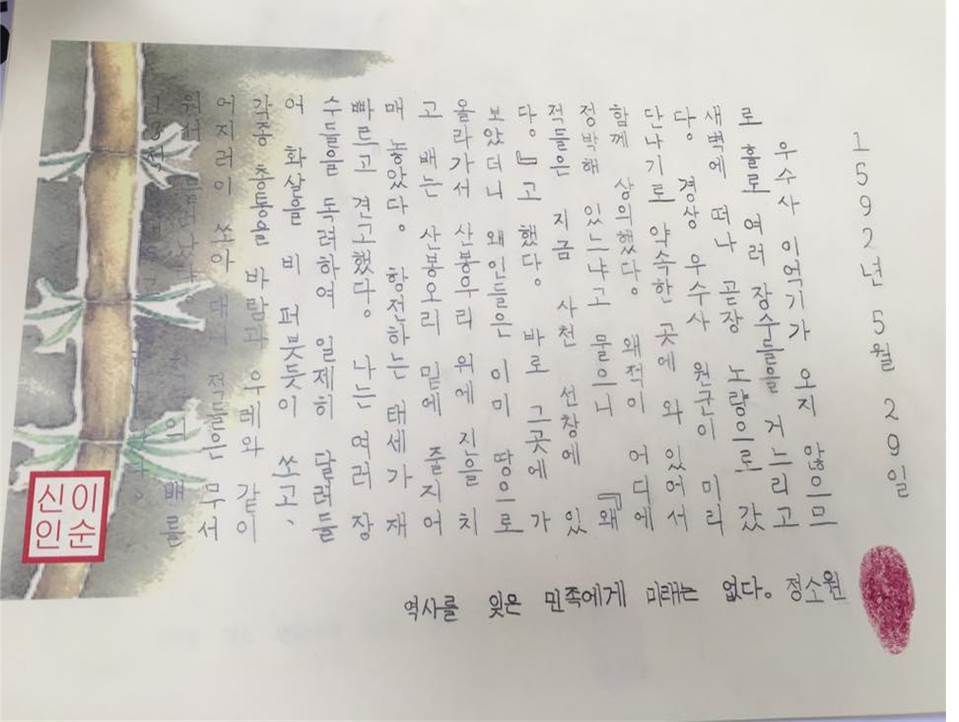 1592년 5월 29일
우수사 이억기가 오지 않으므
로 홀로 여러 장수들을 거느리고
새벽에 떠나 곧장 노량으로 갔
다. 경상 우수사 원균이 미리
단나기로 약속한 곳에 와 있어서
함께 상의했다. 왜적이 어디에
정박해 있느냐고 물으니 『왜
적들은 지금 사천 선창에 있
다.』고 했다. 바로 그곳에 가
보았더니 왜인들은 이미 땅으로
올라가서 산봉우리 위에 진을 치
고 배는 산봉오리 밑에 줄지어
매 놓았다. 항전하는 태세가 재
빠르고 견고했다. 나는 여러 장
수들을 독려하여 일제히 달려들
어 화살을 비 퍼붓듯이 쏘고,
각종 총통을 바람과 우레와 같이
어지러이 쏘아 대니 적들은 무서
워서 물러났다. 배를
역사를 잊은 민족에게 미래는 없다. 정소원
이순
신인